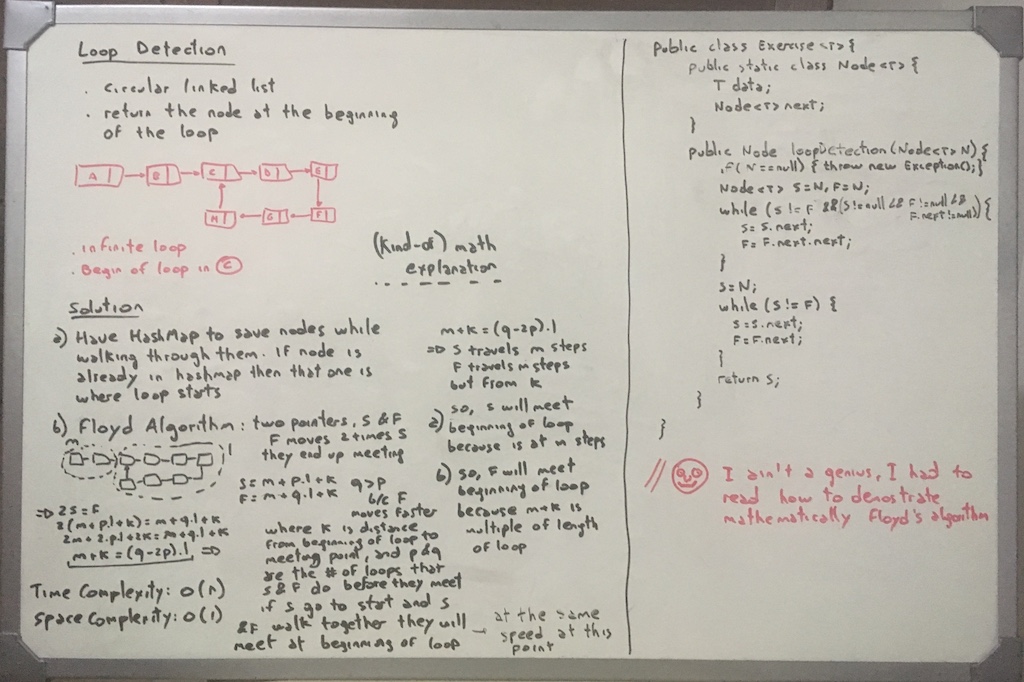 Loop Detection
. circular linked list
. return the node at the beginning
of the loop
A B C D E
H G F
. infinite loop
. Begin of loop in C
Solution
a) Have HashMap to save nodes while
walking through them. If node is
already in hashmap then that one is
where loop starts
b) Floyd Algorithm: two pointers, S & F
F moves 2 times S
they end up meeting
m
l
=> 2S = F
2(m+p.l+k) = m+q.l+k
2m+2.p.l+2k = m+q.l+k
m+k = (q-2p).l =>
S = m+p.l+k q>p
F = m+q.l+k b/c F
moves faster
where k is distance
from beginning of loop to
meeting point, and p&q
are the # of loops that
S & F do before they meet
if S go to start and S
&F walk together they will
meet at beginning of loop
- at the same
speed at this
point
Time Complexity: O(n)
Space Complexity: O(1)
(Kind-of) math
explanation
m+k = (q-2p).l
=> S travels m steps
F travels m steps
but from k
a) so, S will meet
beginning of loop
because is at m steps
b) so, F will meet
beginning of loop
because m+k is
multiple of length
of loop
Public class Exercise<T> {
public static class Node<T> {
T data;
Node<T> next;
}
public Node loopDetection(Node<T> N) {
if(N==null) { throw new Exception(); }
Node<T> S=N, F=N;
while (S != F && (S!=null && F!=null &&
F.next!=null)) {
S= S.next;
F= F.next.next;
}
S=N;
while (S != F) {
S=S.next;
F=F.next;
}
return S;
}
}
// I ain't a genius, I had to
read how to demostrate
mathematically Floyd's algorithm